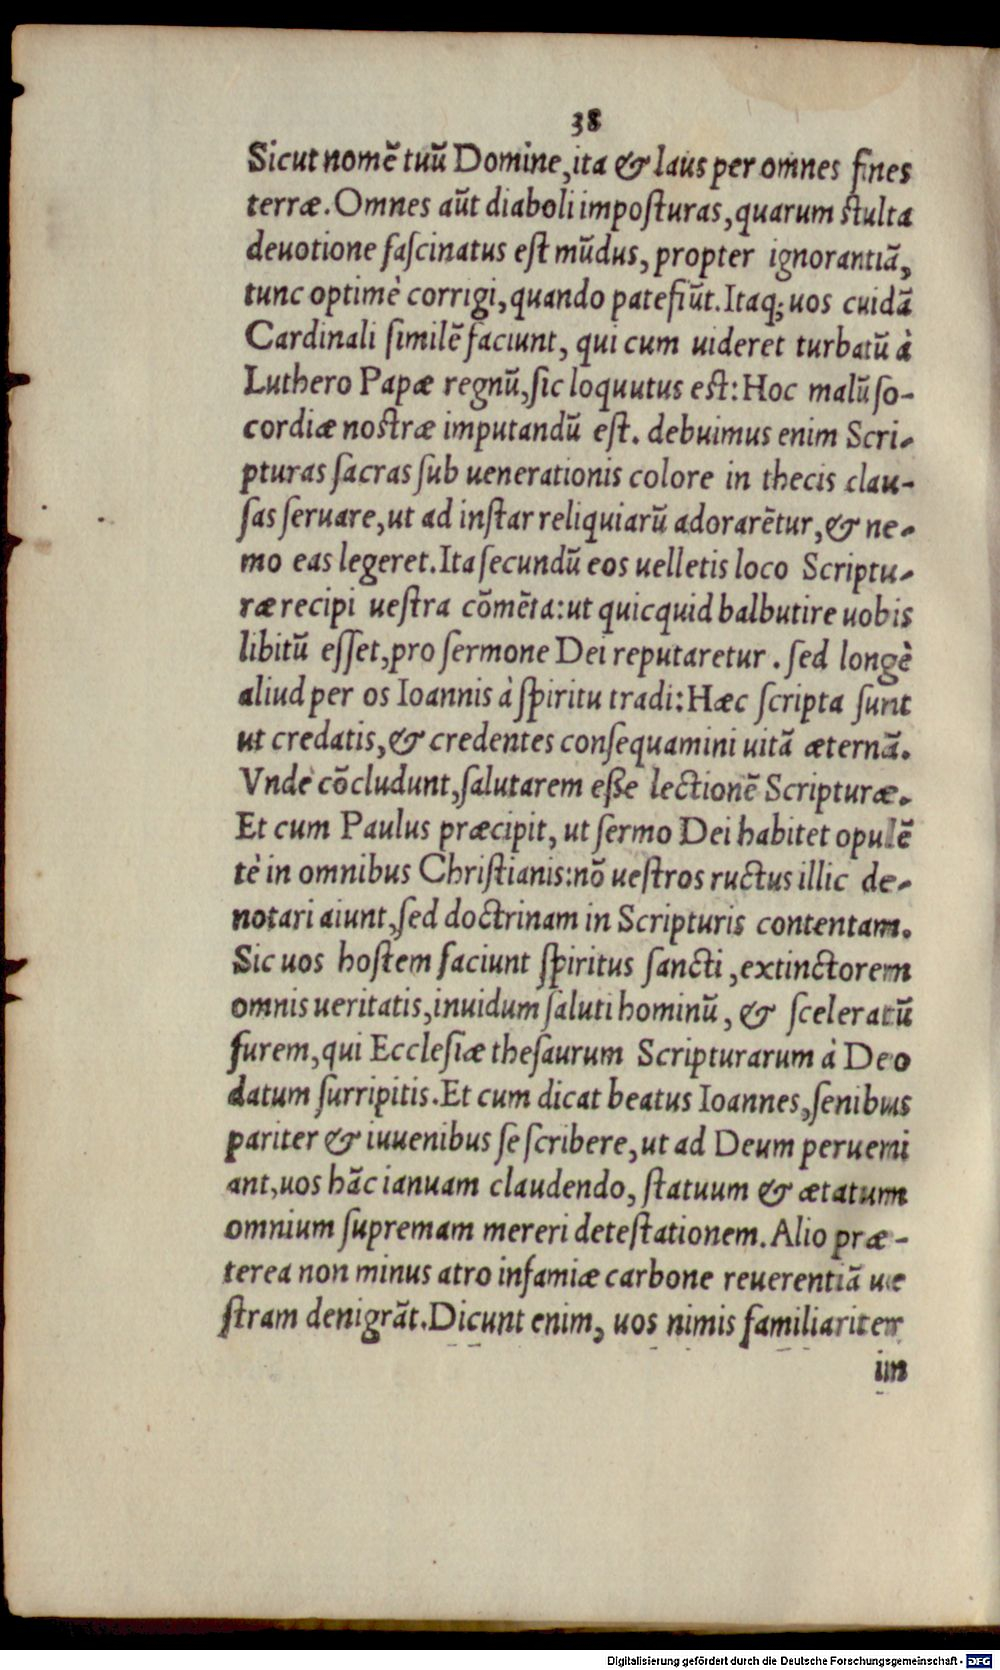 38
Sicut nomẽ tuũ Domine, ita & laus per omnes fines
terræ. Omnes aũt diaboli imposturas, quarum stulta
deuotione fascinatus est mũdus, propter ignorantiã,
tunc optimè corrigi, quando patefiũt. Itaq; uos cuidã
Cardinali similẽ faciunt, qui cum uideret turbatũ à
Luthero Papæ regnũ, sic loquutus est: Hoc malũ so-
cordiæ nostræ imputandũ est. debuimus enim Scri-
pturas sacras sub uenerationis colore in thecis clau-
sas seruare, ut ad instar reliquiarũ adorarẽtur, & ne-
mo eas legeret. Ita secundũ eos uelletis loco Scriptu-
ræ recipi uestra cõmẽta: ut quicquid balbutire uobis
libitũ esset, pro sermone Dei reputaretur. sed longè
aliud per os Ioannis à spiritu tradi: Hæc scripta sunt
ut credatis, & credentes consequamini uitã æternã.
Vnde cõcludunt, salutarem eße lectionẽ Scripturæ.
Et cum Paulus præcipit, ut sermo Dei habitet opulẽ
tè in omnibus Christianis: nõ uestros ructus illic de-
notari aiunt, sed doctrinam in Scripturis contentam.
Sic uos hostem faciunt spiritus sancti, extinctorem
omnis ueritatis, inuidum saluti hominũ, & sceleratũ
furem, qui Ecclesiæ thesaurum Scripturarum à Deo
datum surripitis. Et cum dicat beatus Ioannes, senibus
pariter & iuuenibus se scribere, ut ad Deum perueni
ant, uos hãc ianuam claudendo, statuum & ætatum
omnium supremam mereri detestationem. Alio præ-
terea non minus atro infamiæ carbone reuerentiã ue
stram denigrãt. Dicunt enim, uos nimis familiariter
im
Digitalisierung gefördert durch die Deutsche Forschungsgemeinschaft - DFG